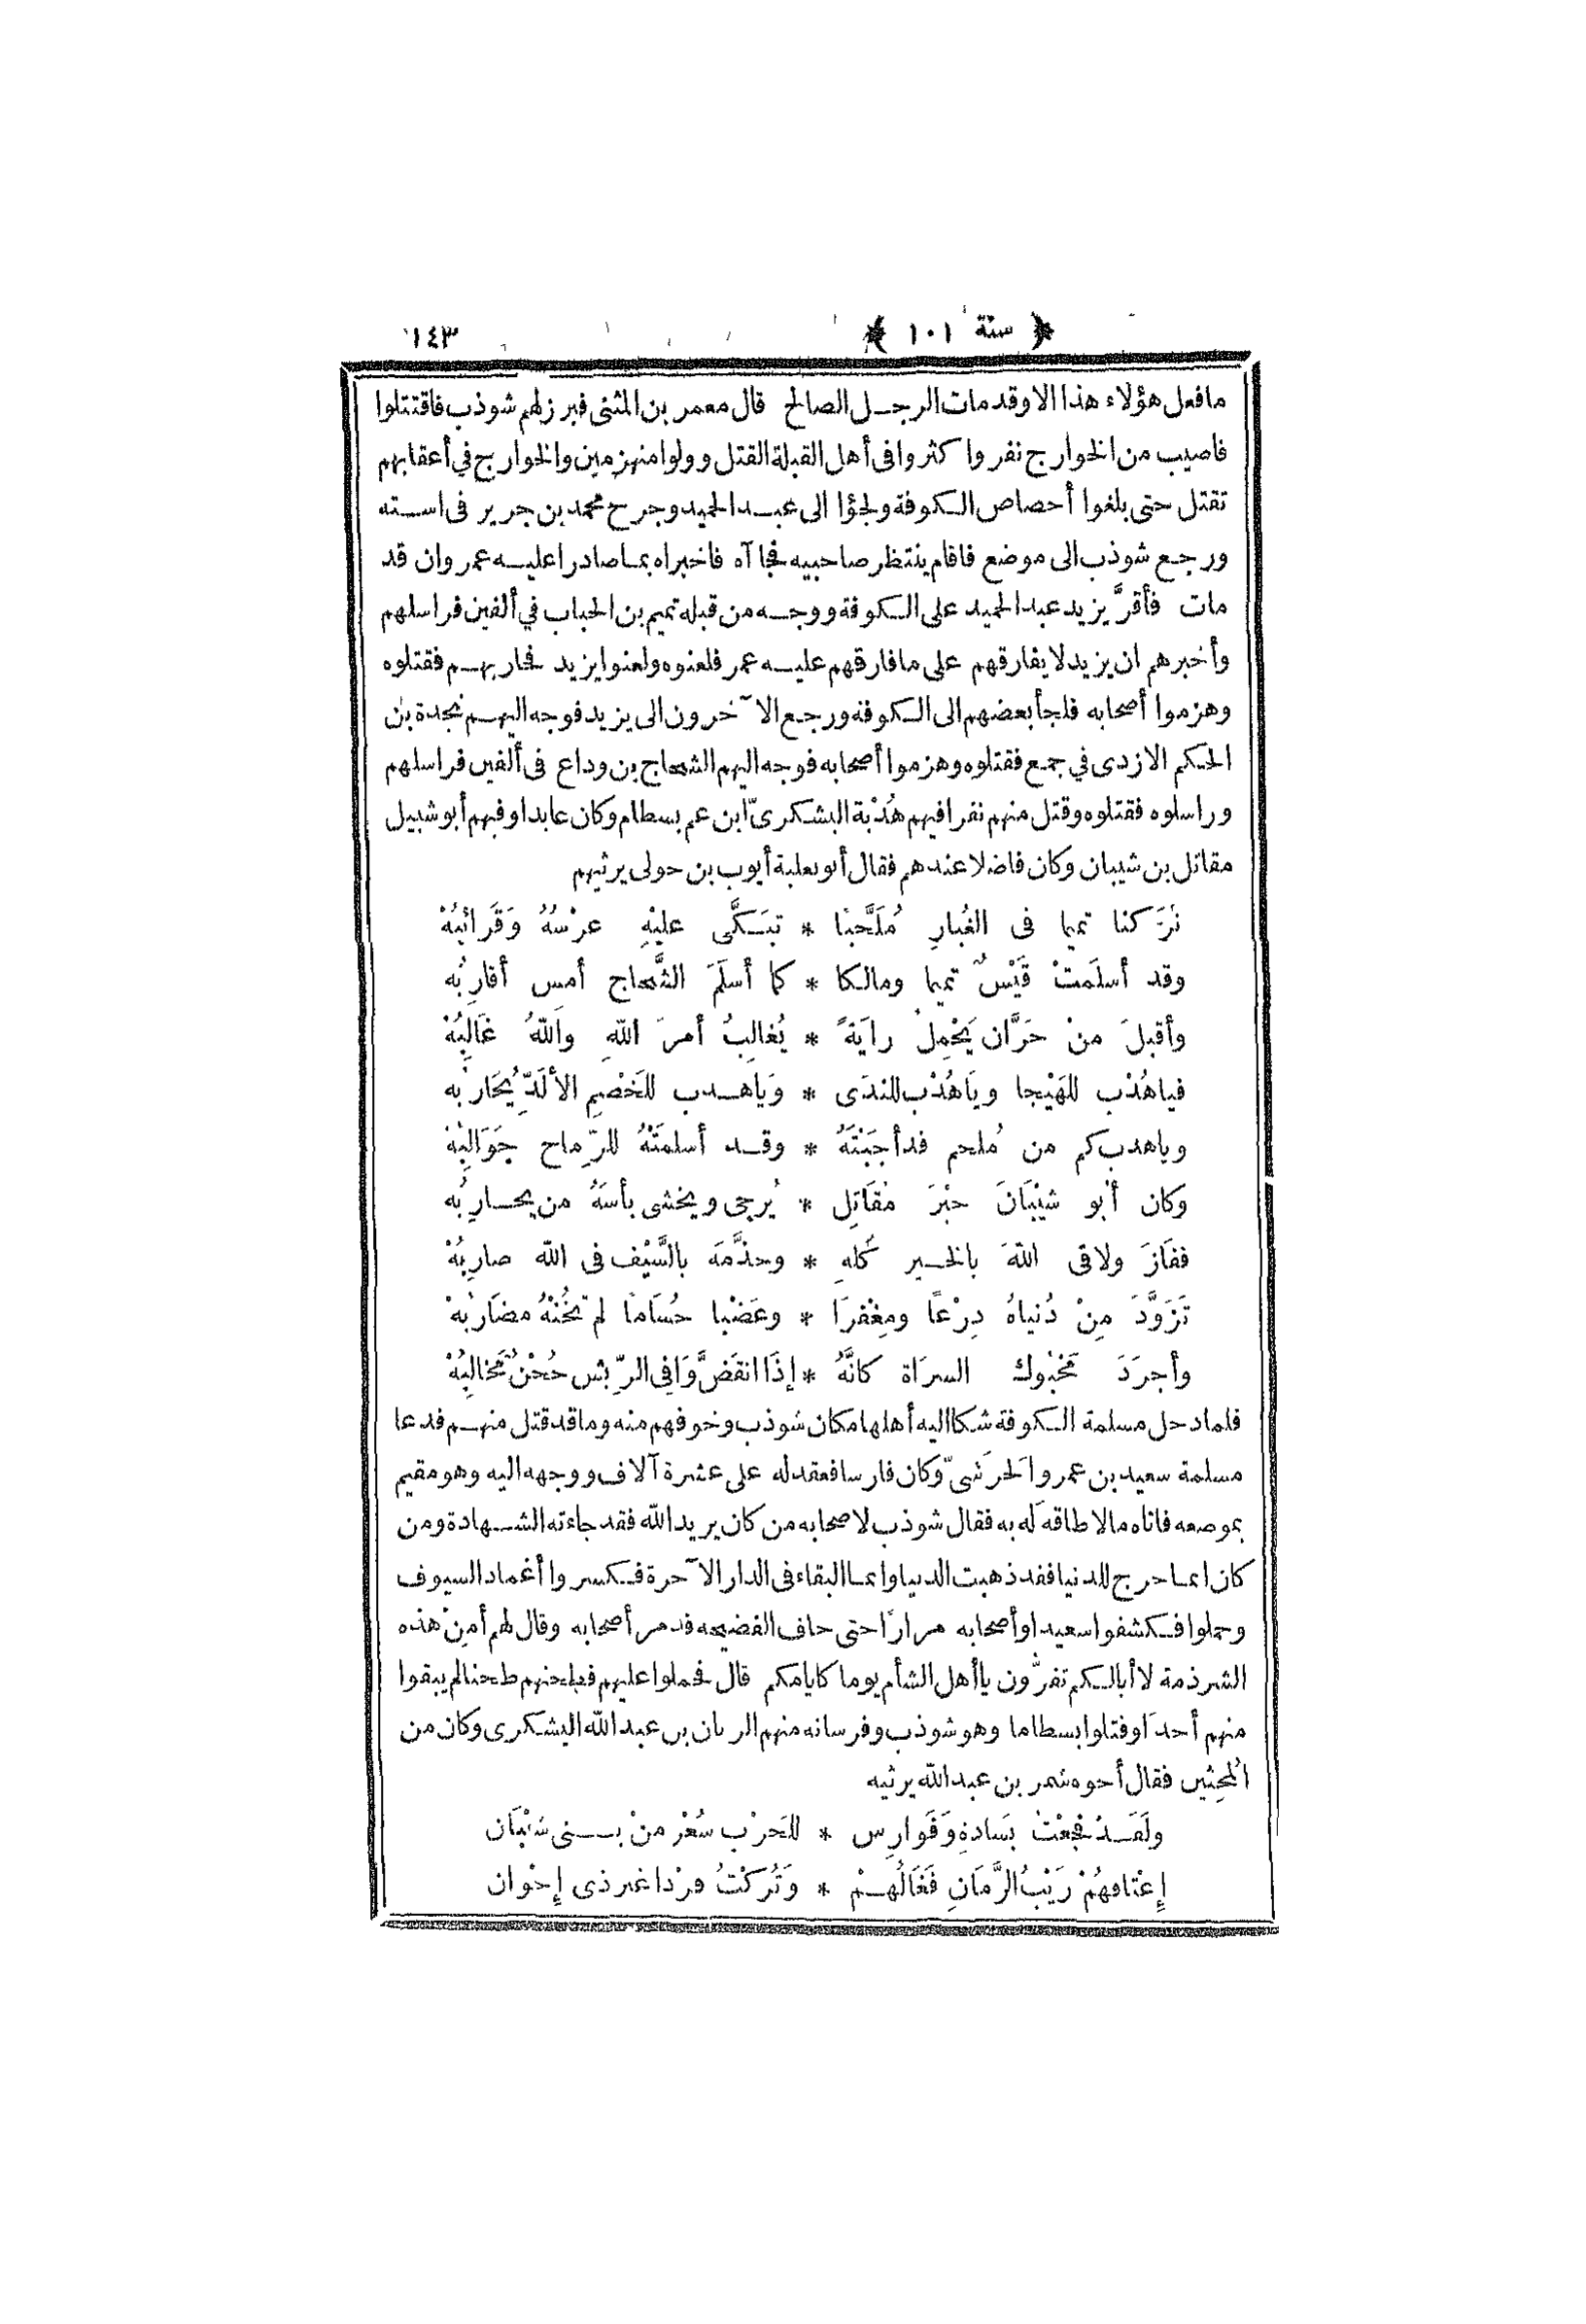 ﴿ سنة ١٠١ ﴾ ١٤٣
مافعل هؤلاء هذا الا وقد مات الرجل الصالح قال معمر بن المثنى فبرز لهم شوذب فاقتتلوا
فاصيب من الخوارج نفر وا كثروا فى أهل القبلة القتل وولوا منهزمين والخوارج في أعقابهم
تقتل حتى بلغوا أحصاص الكوفة ولجؤا الى عبد الحميد وجرح محمد بن جرير فى استه
ورجع شوذب الى موضع فاقام ينتظر صاحبيه فجاآه فاخبراه بما صادرا عليه عمر وان قد
مات فأقرَّ يزيد عبد الحميد على الكوفة ووجه من قبله تميم بن الحباب في ألفين فراسلهم
وأخبرهم ان يزيد لا يفارقهم على ما فارقهم عليه عمر فلعنوه ولعنوا يزيد فحاربهم فقتلوه
وهزموا أصحابه فلجأ بعضهم الى الكوفة ورجع الآخرون الى يزيد فوجه اليهم نجدة بن
الحكم الازدى في جمع فقتلوه وهزموا أصحابه فوجه اليهم الشحاج بن وداع فى ألفين فراسلهم
وراسلوه فقتلوه وقتل منهم نفرا فيهم هُدْبة اليشكرىّ ابن عم بسطام وكان عابدا وفيهم أبو شبيل
مقاتل بن شيبان وكان فاضلا عندهم فقال أبو ثعلبة أيوب بن خولى يرثيهم
تَرَكنا تميما فى الغُبارِ مُلَحَّبًا * تبَكَّى عليْهِ عرْسُهُ وَقَرائبُهْ
وقد أسلَمتْ قَيْسٌ تميما ومالكا * كما أسلَمَ الشَّحاج أمس أقاربُه
وأقبلَ منْ حَرَّان يَحْمِلُ رايَةً * يُغالِبُ أمرَ اللهِ واللهُ غَالِبُهْ
فياهُدْب للهَيْجا ويَاهُدْب للندَى * وَياهدب للخَصْمِ الألَدِّ يُحَاربُه
وياهدب كم من مُلحم قد أجَبْتَهُ * وقد أسلمتَهُ للرِّماح جَوَالِبُهْ
وكان أبو شيْبَانَ خيْرَ مُقَاتِل * يُرجى ويخشى بأسَهُ من يحاربُه
ففَازَ ولاقى اللهَ بالخير كُلهِ * وخذَّمَه بالسَّيْف فى الله ضاربُهْ
تَزَوَّدَ مِنْ دُنياهُ دِرْعًا ومِغْفرَا * وعَضْبا حُسَامًا لم تخُنْهُ مضَاربُهْ
وأجرَدَ مَحْبُوك السرَاة كانَّهُ * إذَا انقَضَّ وَافِى الرّيش حُجْنٌ مَخالبُهْ
فلما دخل مسلمة الكوفة شكا اليه أهلها مكان شوذب وخوفهم منه وما قد قتل منهم فدعا
مسلمة سعيد بن عمرو الحَرَشىّ وكان فارسا فعقد له على عشرة آلاف ووجهه اليه وهو مقيم
بموضعه فاتاه ما لا طاقة له به فقال شوذب لاصحابه من كان يريد الله فقد جاءته الشهادة ومن
كان انما خرج للدنيا فقد ذهبت الدنيا وانما البقاء فى الدار الآخرة فكسروا أغماد السيوف
وحملوا فكشفوا سعيدا وأصحابه مرارًا حتى خاف الفضيحة فذمر أصحابه وقال لهم أمِنْ هذه
الشرذمة لا أبالكم تفرُّون يا أهل الشأم يوما كايامكم قال فحملوا عليهم فطحنهم طحنا لم يبقوا
منهم أحدًا وقتلوا بسطاما وهو شوذب وفرسانه منهم الريان بن عبد الله اليشكرى وكان من
المُخبِتين فقال أخوه شمر بن عبد الله يرثيه
ولَقَدْ فُجعْتُ بسَادةٍ وَفَوارِس * للحَرْب سُعْر منْ بنى شَيْبَان
إعْتَاقهُمْ رَيْبُ الزَّمَانِ فَغَالَهُمْ * وَتُركْتُ فرْدا غير ذى إخْوان